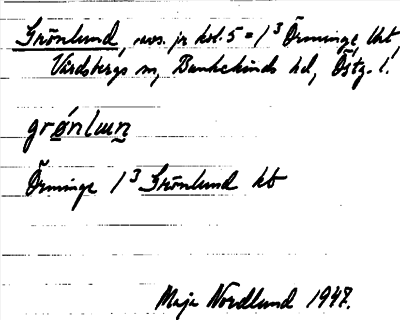 Grönlund, avs. jr kol. 5 = 1³ Örminge, Ukt
Vårdsbergs sn, Bankekinds hd, Östg. l.
grǿnlun
Örminge 1³ Grönlund kb
Maja Nordlund 1947.